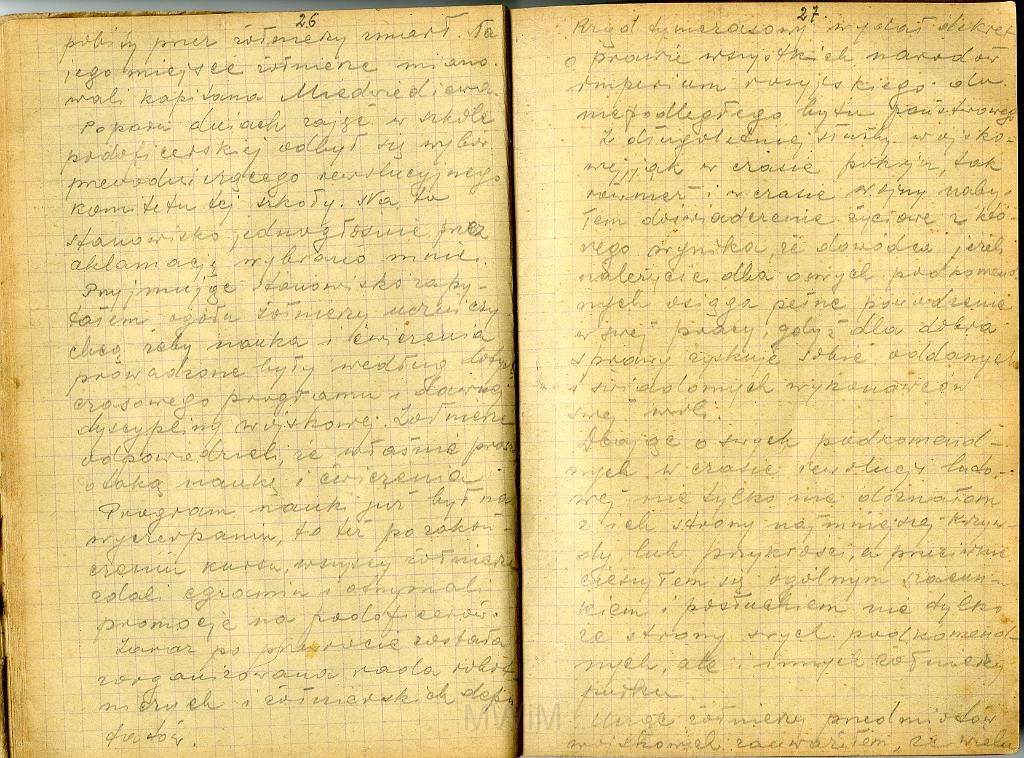 26
pobity przez żołnierzy zmarł. Na
jego miejsce żołnierze miano-
wali kapitana Miedwiediewa.
Po paru dniach zajęć w szkole
podoficerskiej odbył się wybór
przewodniczącego rewolucyjnego
komitetu tej szkoły. Na to
stanowisko jednogłośnie przez
aklamację wybrano mnie.
Przyjmując stanowisko zapy-
tałem ogółu żołnierzy uczni czy
chcą żeby nauka i ćwiczenia
prowadzone były według dotych
czasowego programu i dawnej
dyscypliny wojskowej. Żołnierze
odpowiedzieli, że właśnie proszą
o taką naukę i ćwiczenia
Program nauk już był na
wyczerpaniu, to też po zakoń-
czeniu kursu, wszyscy żołnierze
zdali egzamin i otrzymali
promocję na podoficerów.
Zaraz po powrocie została
zorganizowana rada robot
niczych i żołnierskich depu
tatów.
27
Rząd tymczasowy wydał dekret
o prawie wszystkich narodów
imperium rosyjskiego do
niepodległego bytu państwowego
Z długoletniej służby wojsko-
wej, jak w czasie pokoju, tak
również i w czasie wojny naby-
łem doświadczenie życiowe z któ-
rego wynika, że dowódca jeżeli
należycie dba o swych podkomend
nych osiąga pełne powodzenie
w swej pracy, gdyż dla dobra
sprawy zyskuje sobie oddanych
i świadomych wykonawców
swej woli.
Dbając o swych podkomend-
nych w czasie rewolucji ludo-
wej nie tylko nie doznałem
z ich strony najmniejszej krzyw-
dy lub przykrości, a przeciwnie
cieszyłem się ogólnym szacun-
kiem i posłuchem nie tylko
ze strony swych podkomend
nych, ale i innych żołnierzy
pułku.
Ucząc żołnierzy przedmiotów
wojskowych zauważyłem, że wielu